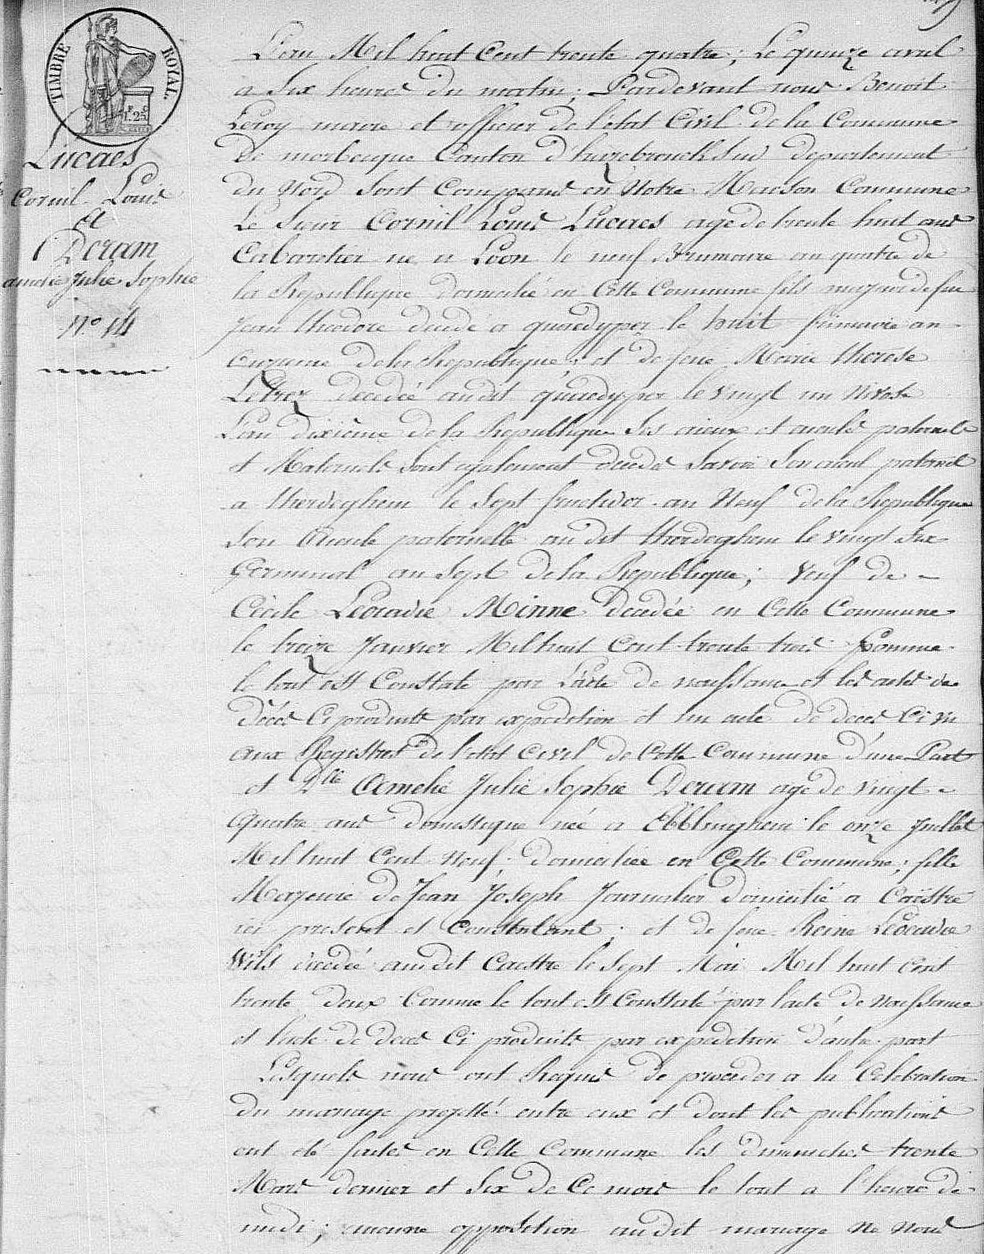 TIMBRE ROYAL.
F. C.
1. 25
Lucaes
Cornil Louis
et
Deram
amelie Julie Sophie
N° 14
L'an Mil huit Cent trente quatre ; Le quinze avril
a Six heures du matin ; Pardevant nous Benoit
Leroy maire et officier de l'état Civil de la Commune
De morbecque Canton d'hazebrouck Sud departement
du Nord Sont Comparus en Notre Maison Commune
Le Sieur Cornil Louis Lucaes age de trente huit ans
Cabaretier né a Loon le neuf Brumaire an quatre de
la Republique domicilié en Cette Commune fils majeur de feu
Jean theodore decedé a quaedyper le huit frimaire an
onzieme de la Republique, et de feue Marie therese
decedée audit quaedyper le vingt un Nivose
L'an dixieme de la Republique Ses aieux et aieules paternels
et Maternels Sont egalement decedés Savoir Son aieul paternel
a therdeghem le Sept fructidor an Neuf de la Republique
Son aieule paternelle audit therdeghem le vingt Six
Germinal an Sept de la Republique ; Veuf de
Cécile Léocadie Minne decedée en Cette Commune
le treize Janvier Mil huit Cent trente trois Comme
le tout est Constaté par l'acte de naissance et les actes de
décès Ci produits par expedition et un acte de deces Ci vu
aux Registres de l'etat Civil de Cette Commune d'une Part
et Dlle Amelie Julie Sophie Deram age de vingt
quatre ans domestique née a Ebblinghem le onze Juillet
Mil huit Cent Neuf domiciliée en Cette Commune ; fille
Majeure de Jean Joseph Journalier domicilié a Caëstre
ici present et Consentant ; et de feue Reine Léocadie
Wils decedé audit Caestre le Sept Mai Mil huit Cent
trente deux Comme le tout est Constaté par l'acte de Naissance
et l'acte de deces Ci produits par expedition d'autre part
Lesquels nous ont Requis de proceder a la Celebration
du mariage projetté entre eux et dont les publications
ont été faites en Cette Commune les dimanches trente
Mars dernier et Six de Ce mois le tout a l'heure de
midi ; aucune opposition audit mariage Ne Nous